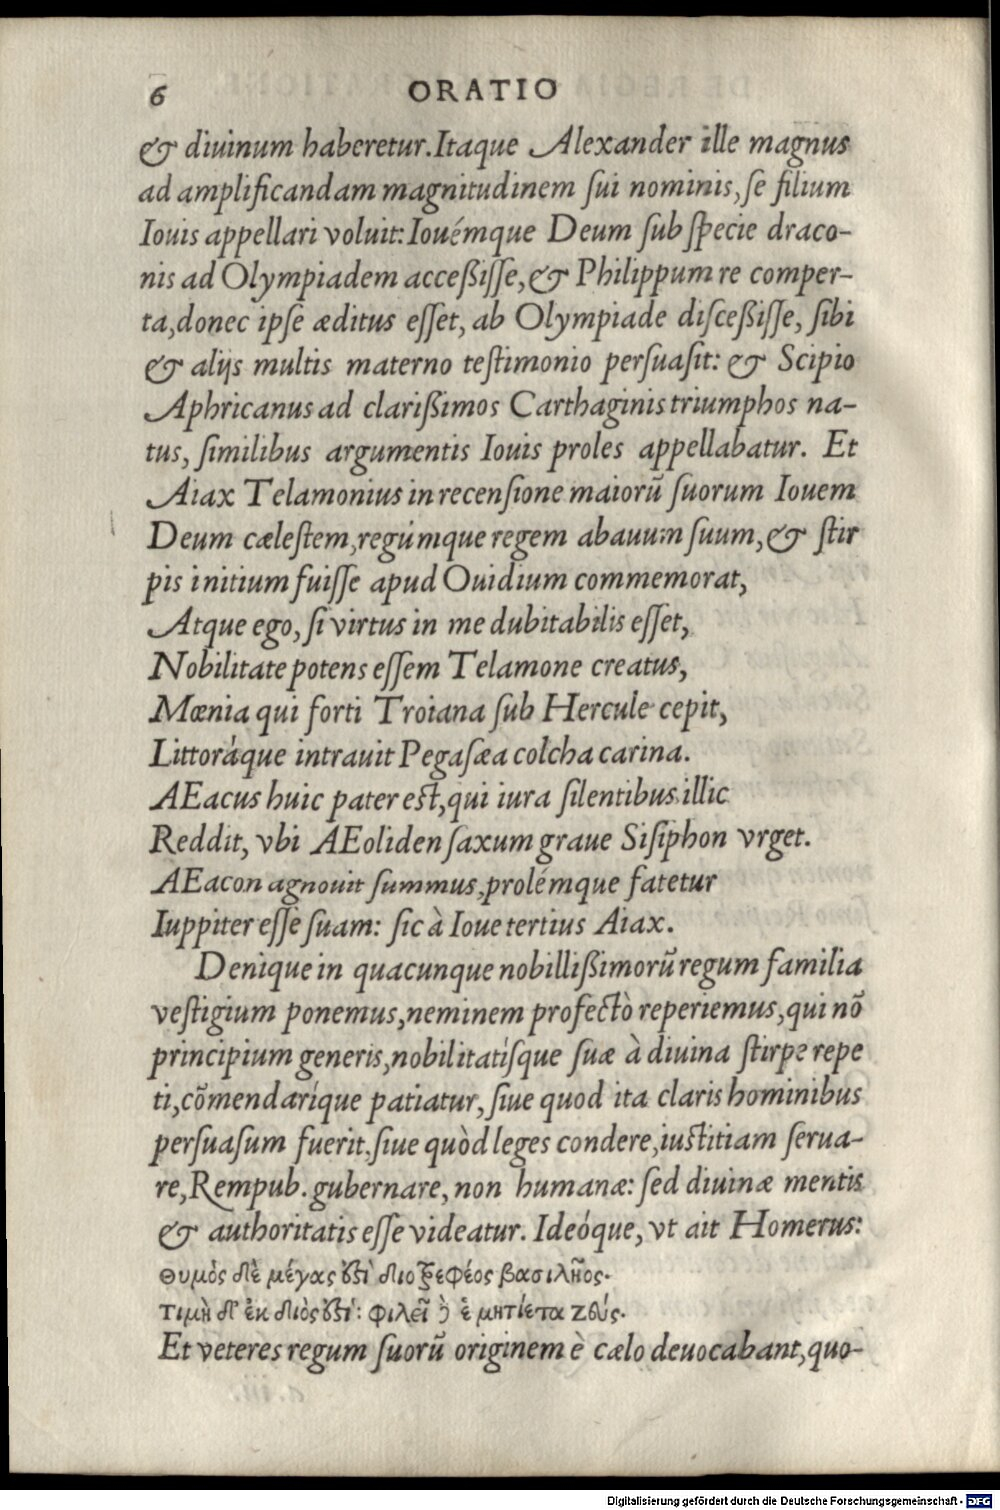 6 ORATIO
& diuinum haberetur.Itaque Alexander ille magnus
ad amplificandam magnitudinem ſui nominis,ſe filium
Iouis appellari voluit:Iouémque Deum ſub ſpecie draco-
nis ad Olympiadem acceßiſſe,& Philippum re comper-
ta,donec ipſe æditus eſſet, ab Olympiade diſceßiſſe, ſibi
& alijs multis materno teſtimonio perſuaſit: & Scipio
Aphricanus ad clarißimos Carthaginis triumphos na-
tus, ſimilibus argumentis Iouis proles appellabatur. Et
Aiax Telamonius in recenſione maiorũ ſuorum Iouem
Deum cæleſtem,regúmque regem abauum ſuum,& ſtir
pis initium fuiſſe apud Ouidium commemorat,
Atque ego, ſi virtus in me dubitabilis eſſet,
Nobilitate potens eſſem Telamone creatus,
Mœnia qui forti Troiana ſub Hercule cepit,
Littoráque intrauit Pegaſæa colcha carina.
AEacus huic pater eſt,qui iura ſilentibus illic
Reddit, vbi AEoliden ſaxum graue Siſiphon vrget.
AEacon agnouit ſummus,prolémque fatetur
Iuppiter eſſe ſuam: ſic à Ioue tertius Aiax.
Denique in quacunque nobillißimorũ regum familia
veſtigium ponemus,neminem profectò reperiemus,qui nõ
principium generis,nobilitatíſque ſuæ à diuina ſtirpe repe
ti,cõmendaríque patiatur, ſiue quod ita claris hominibus
perſuaſum fuerit.ſiue quòd leges condere,iuſtitiam ſerua-
re,Rempub.gubernare, non humanæ: ſed diuinæ mentis
& authoritatis eſſe videatur. Ideóque, vt ait Homerus:
θυμὸς δὲ μέγας ἐστὶ διοτρεφέος βασιλῆος.
Τιμὴ δ' ἐκ διὸς ἐστί: φιλεῖ δέ ἑ μητίετα Ζεύς.
Et veteres regum ſuorũ originem è cælo deuocabant,quo-
Digitalisierung gefördert durch die Deutsche Forschungsgemeinschaft - DFG